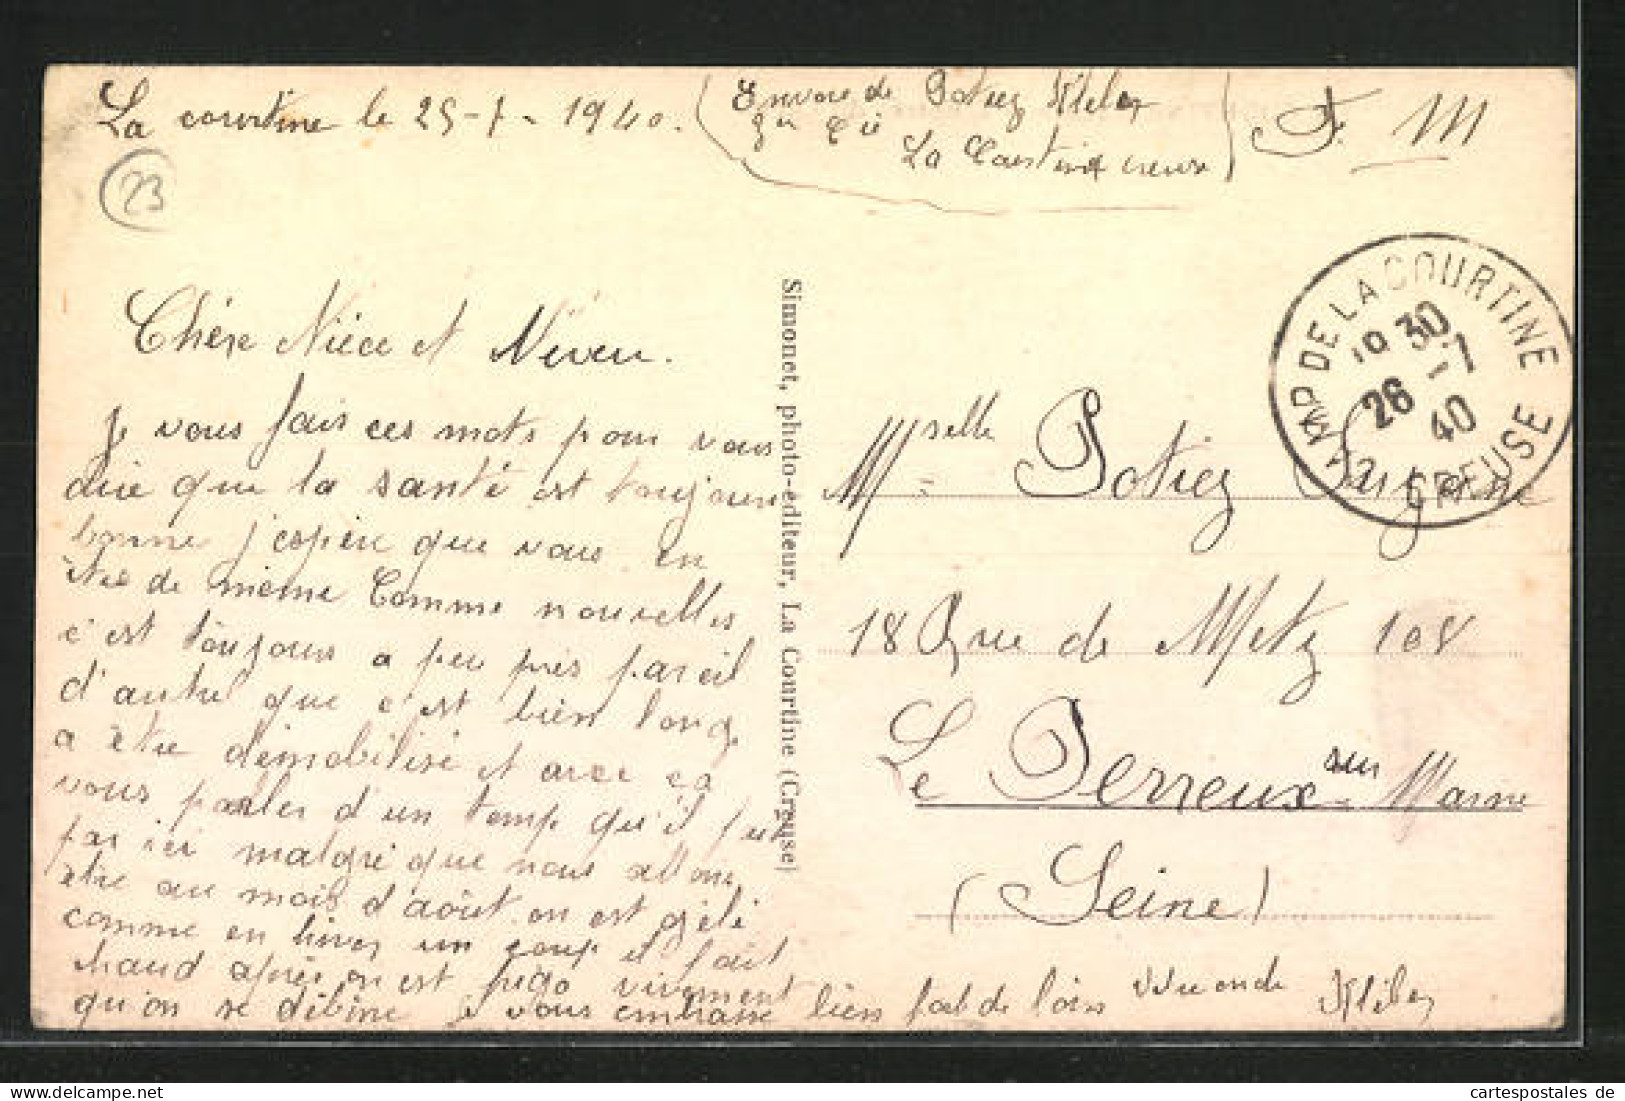 La courtine le 25-7-1940.
Envoie de Potiez
La Courtine creuse
F. M
23
Chère Nièce et Neveu.
Je vous fais ces mots pour vous
dire que la santé est toujours
bonne j'espère que vous en
ète de mème Comme nouvelles
c'est toujours a peu près pareil
d'autre que c'est bien long
a être démobilisé et avec ça
vous parler d'un temp qu'il fait
par ici malgré que nous allons
être au mois d'août on est gélé
comme en hiver un coup il fait
chaud après on est frigo vivement
qu'on se débine je vous embrasse bien fort de loin
Simonet, photo-éditeur, La Courtine (Creuse)
CAMP DE LA COURTINE
18 30
26 -7
40
CREUSE
Mselle Potiez
18 Rue de Metz 108
Le Perreux sur Marne
(Seine)
cartespostales.de